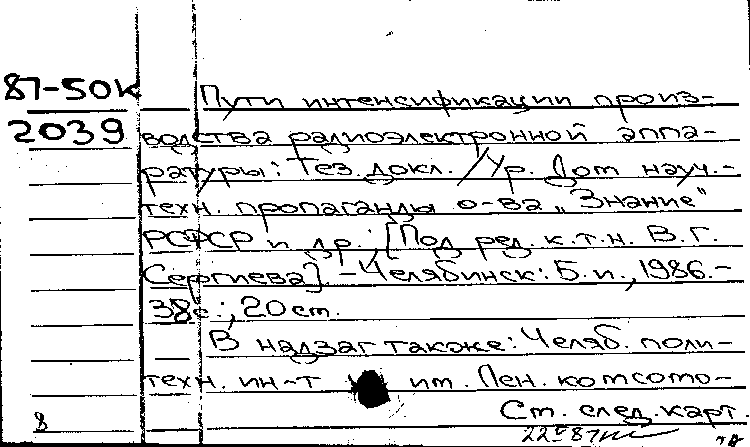 87-50К
2039
Пути интенсификации произ-
водства радиоэлектронной аппа-
ратуры: Тез. докл. / Ур. Дом науч.-
техн. пропаганды о-ва „Знание"
РСФСР и др.; [Под ред. к.т.н. В.Г.
Сергиева]. - Челябинск: Б.и., 1986. -
38с.; 20 cm.
В надзаг также: Челяб. поли-
техн. ин-т им. Лен. комсомо-
Ст. след. карт.
8